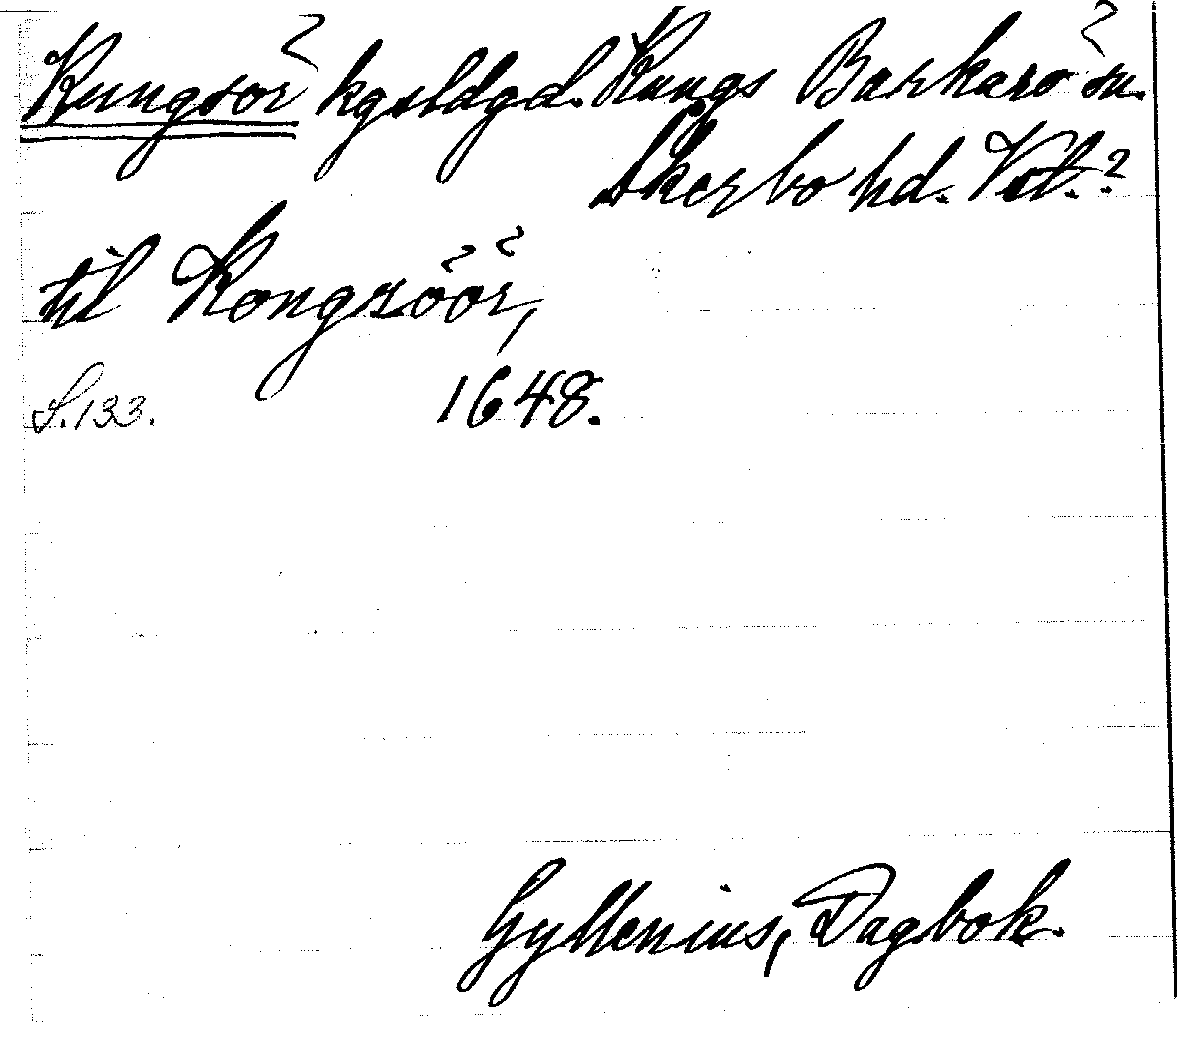 Kungsör kgsldgd. Kungs Barkarö sn.
Åkerbo hd. Vstl.?
til Kongzöör,
S.133. 1648.
Gyllenius, Dagbok.